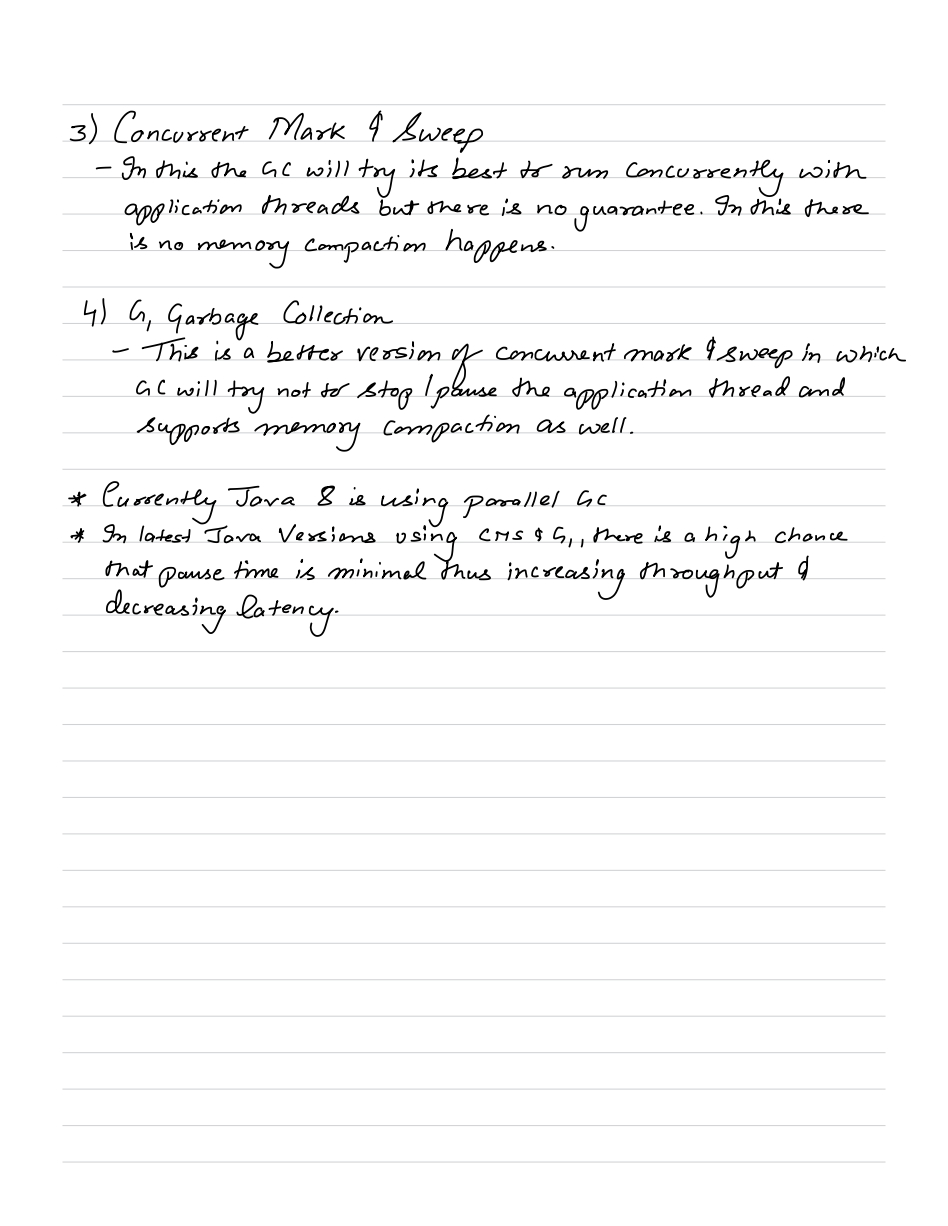 3) Concurrent Mark & Sweep
- In this the GC will try its best to run concurrently with
application threads but there is no guarantee. In this there
is no memory compaction happens.
4) G1 Garbage Collection
- This is a better version of concurrent mark & sweep in which
GC will try not to stop / pause the application thread and
supports memory compaction as well.
* Currently Java 8 is using parallel GC
* In latest Java Versions using CMS & G1, there is a high chance
that pause time is minimal thus increasing throughput &
decreasing latency.